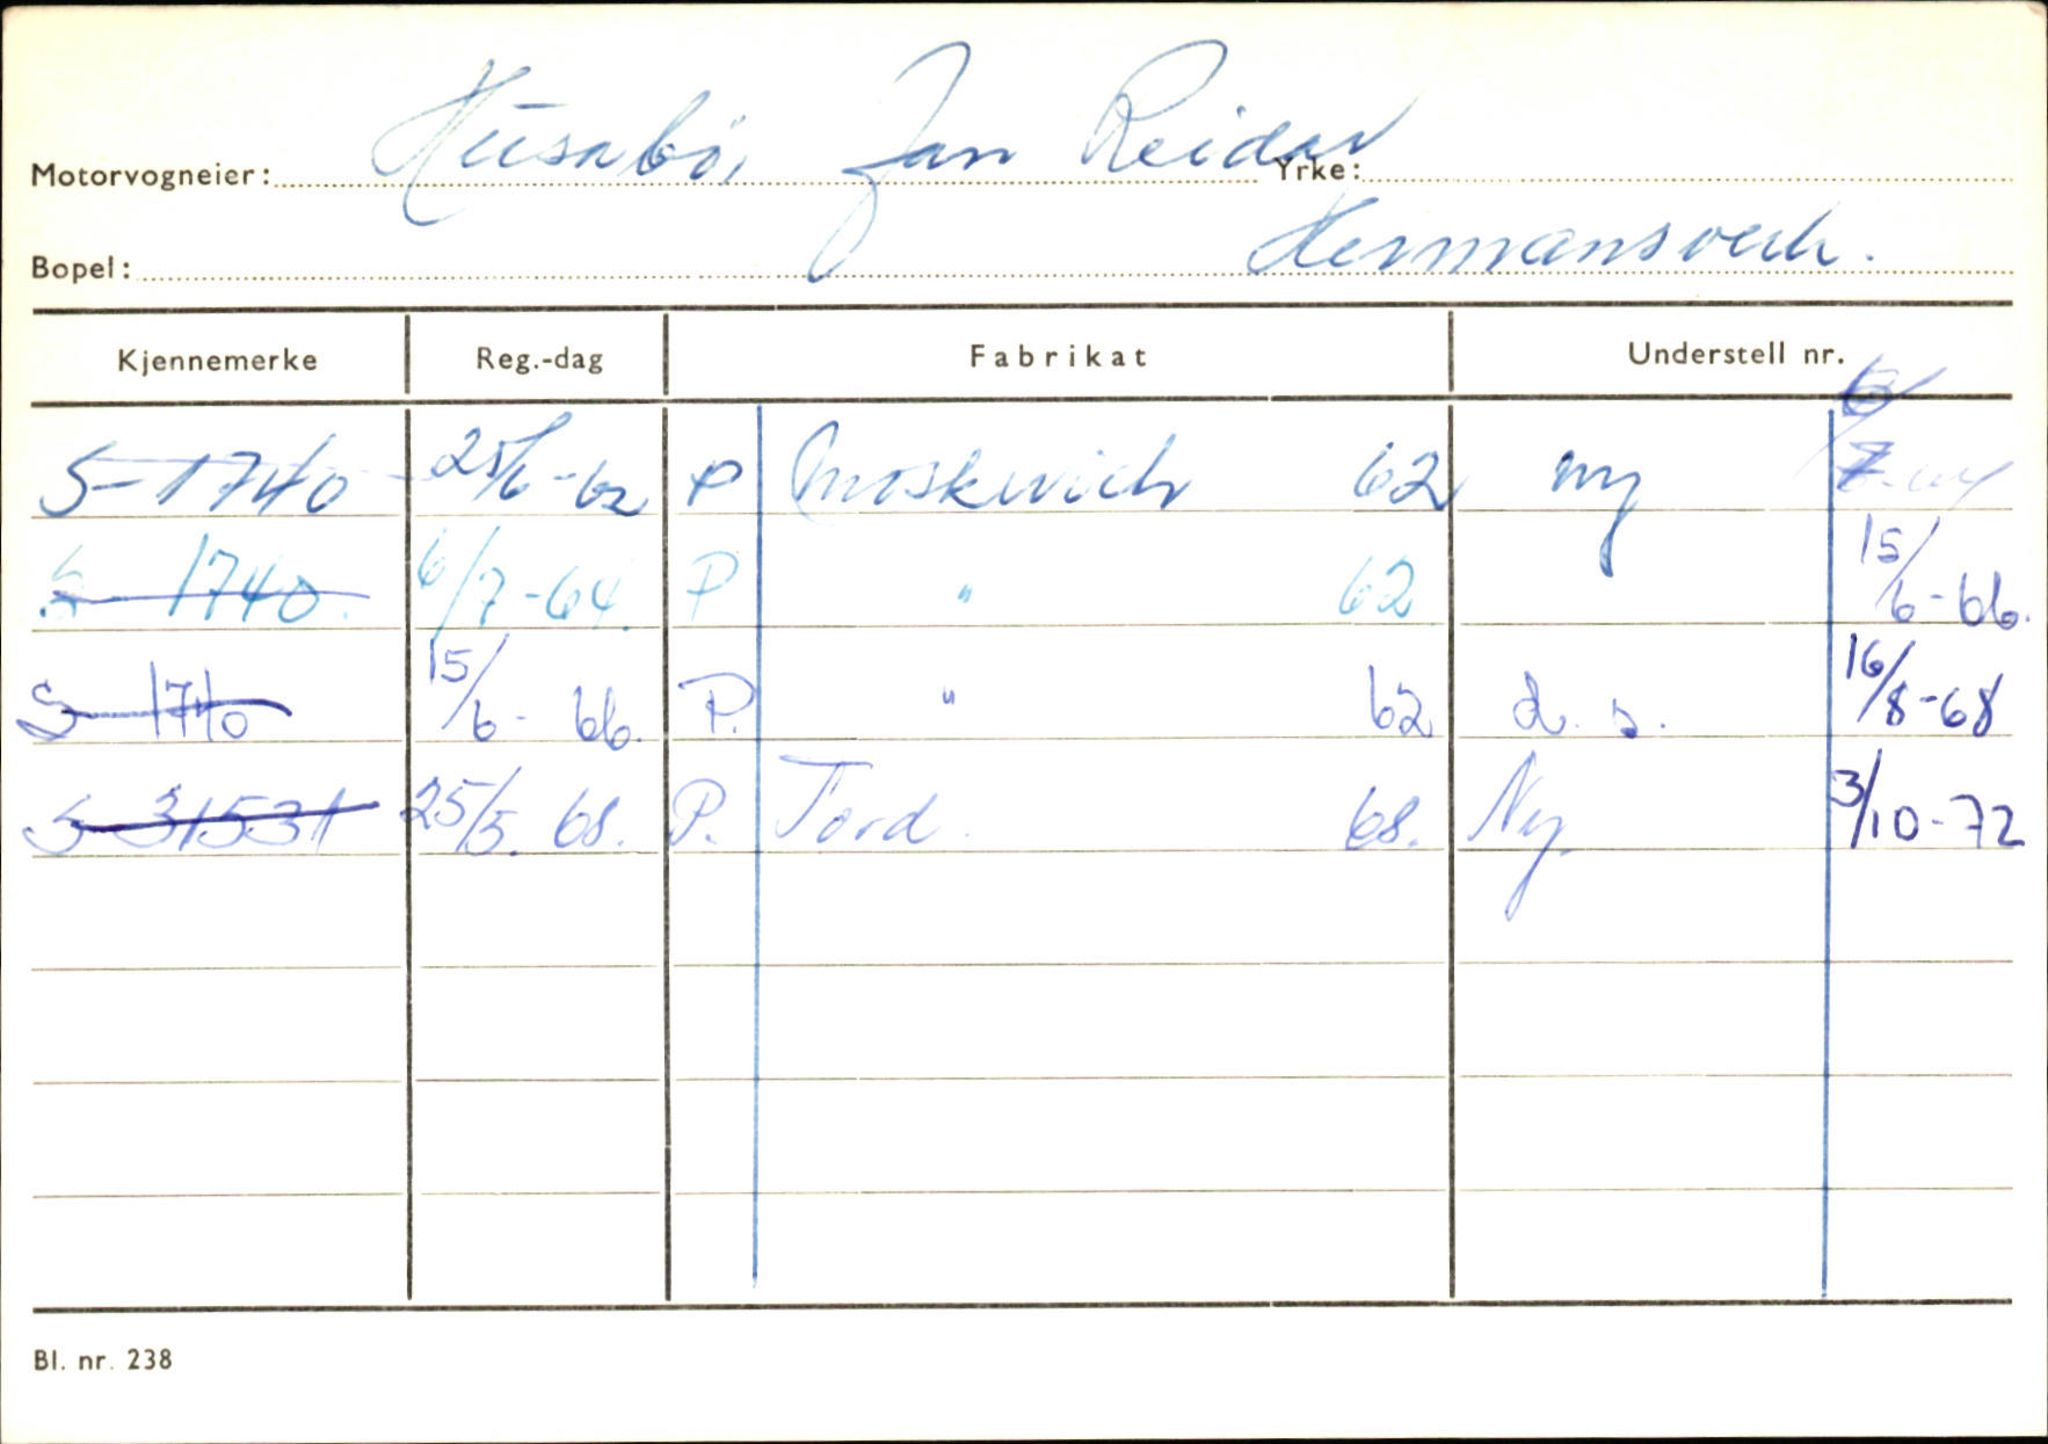 Motorvogneier: Husabö, Jan Reidar Yrke:
Bopel: Hermansverk.
Kjennemerke Reg.-dag Fabrikat Understell nr.
S-1740 25/6-62 P Moskwich 62 ny
S-1740. 6/7-64. P " 62 15/6-66.
S-1740 15/6-66. P. " 62 d.s. 16/8-68
S-31531 25/5. 68. P. Ford. 68. Ny. 3/10-72
Bl. nr. 238